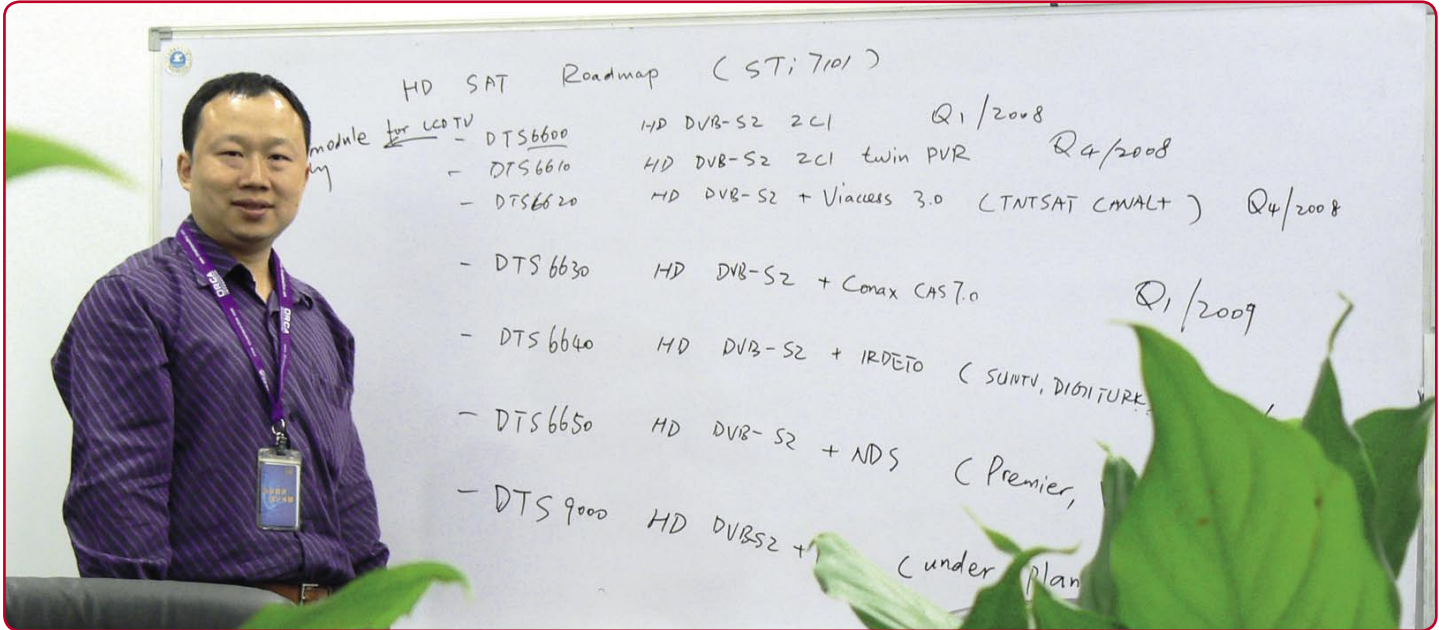 HD SAT Roadmap (STi 7101)
module for LCD TV
- DTS6600 HD DVB-S2 2CI Q1/2008
- DTS6610 HD DVB-S2 2CI twin PVR Q4/2008
- DTS6620 HD DVB-S2 + Viaccess 3.0 (TNTSAT CANAL+) Q4/2008
- DTS6630 HD DVB-S2 + Conax CAS7.0 Q1/2009
- DTS6640 HD DVB-S2 + IRDETO (SUNTV, DIGITURK
- DTS6650 HD DVB-S2 + NDS (Premier,
- DTS9000 HD DVBS2 + (under plan
ORCA
ORCA